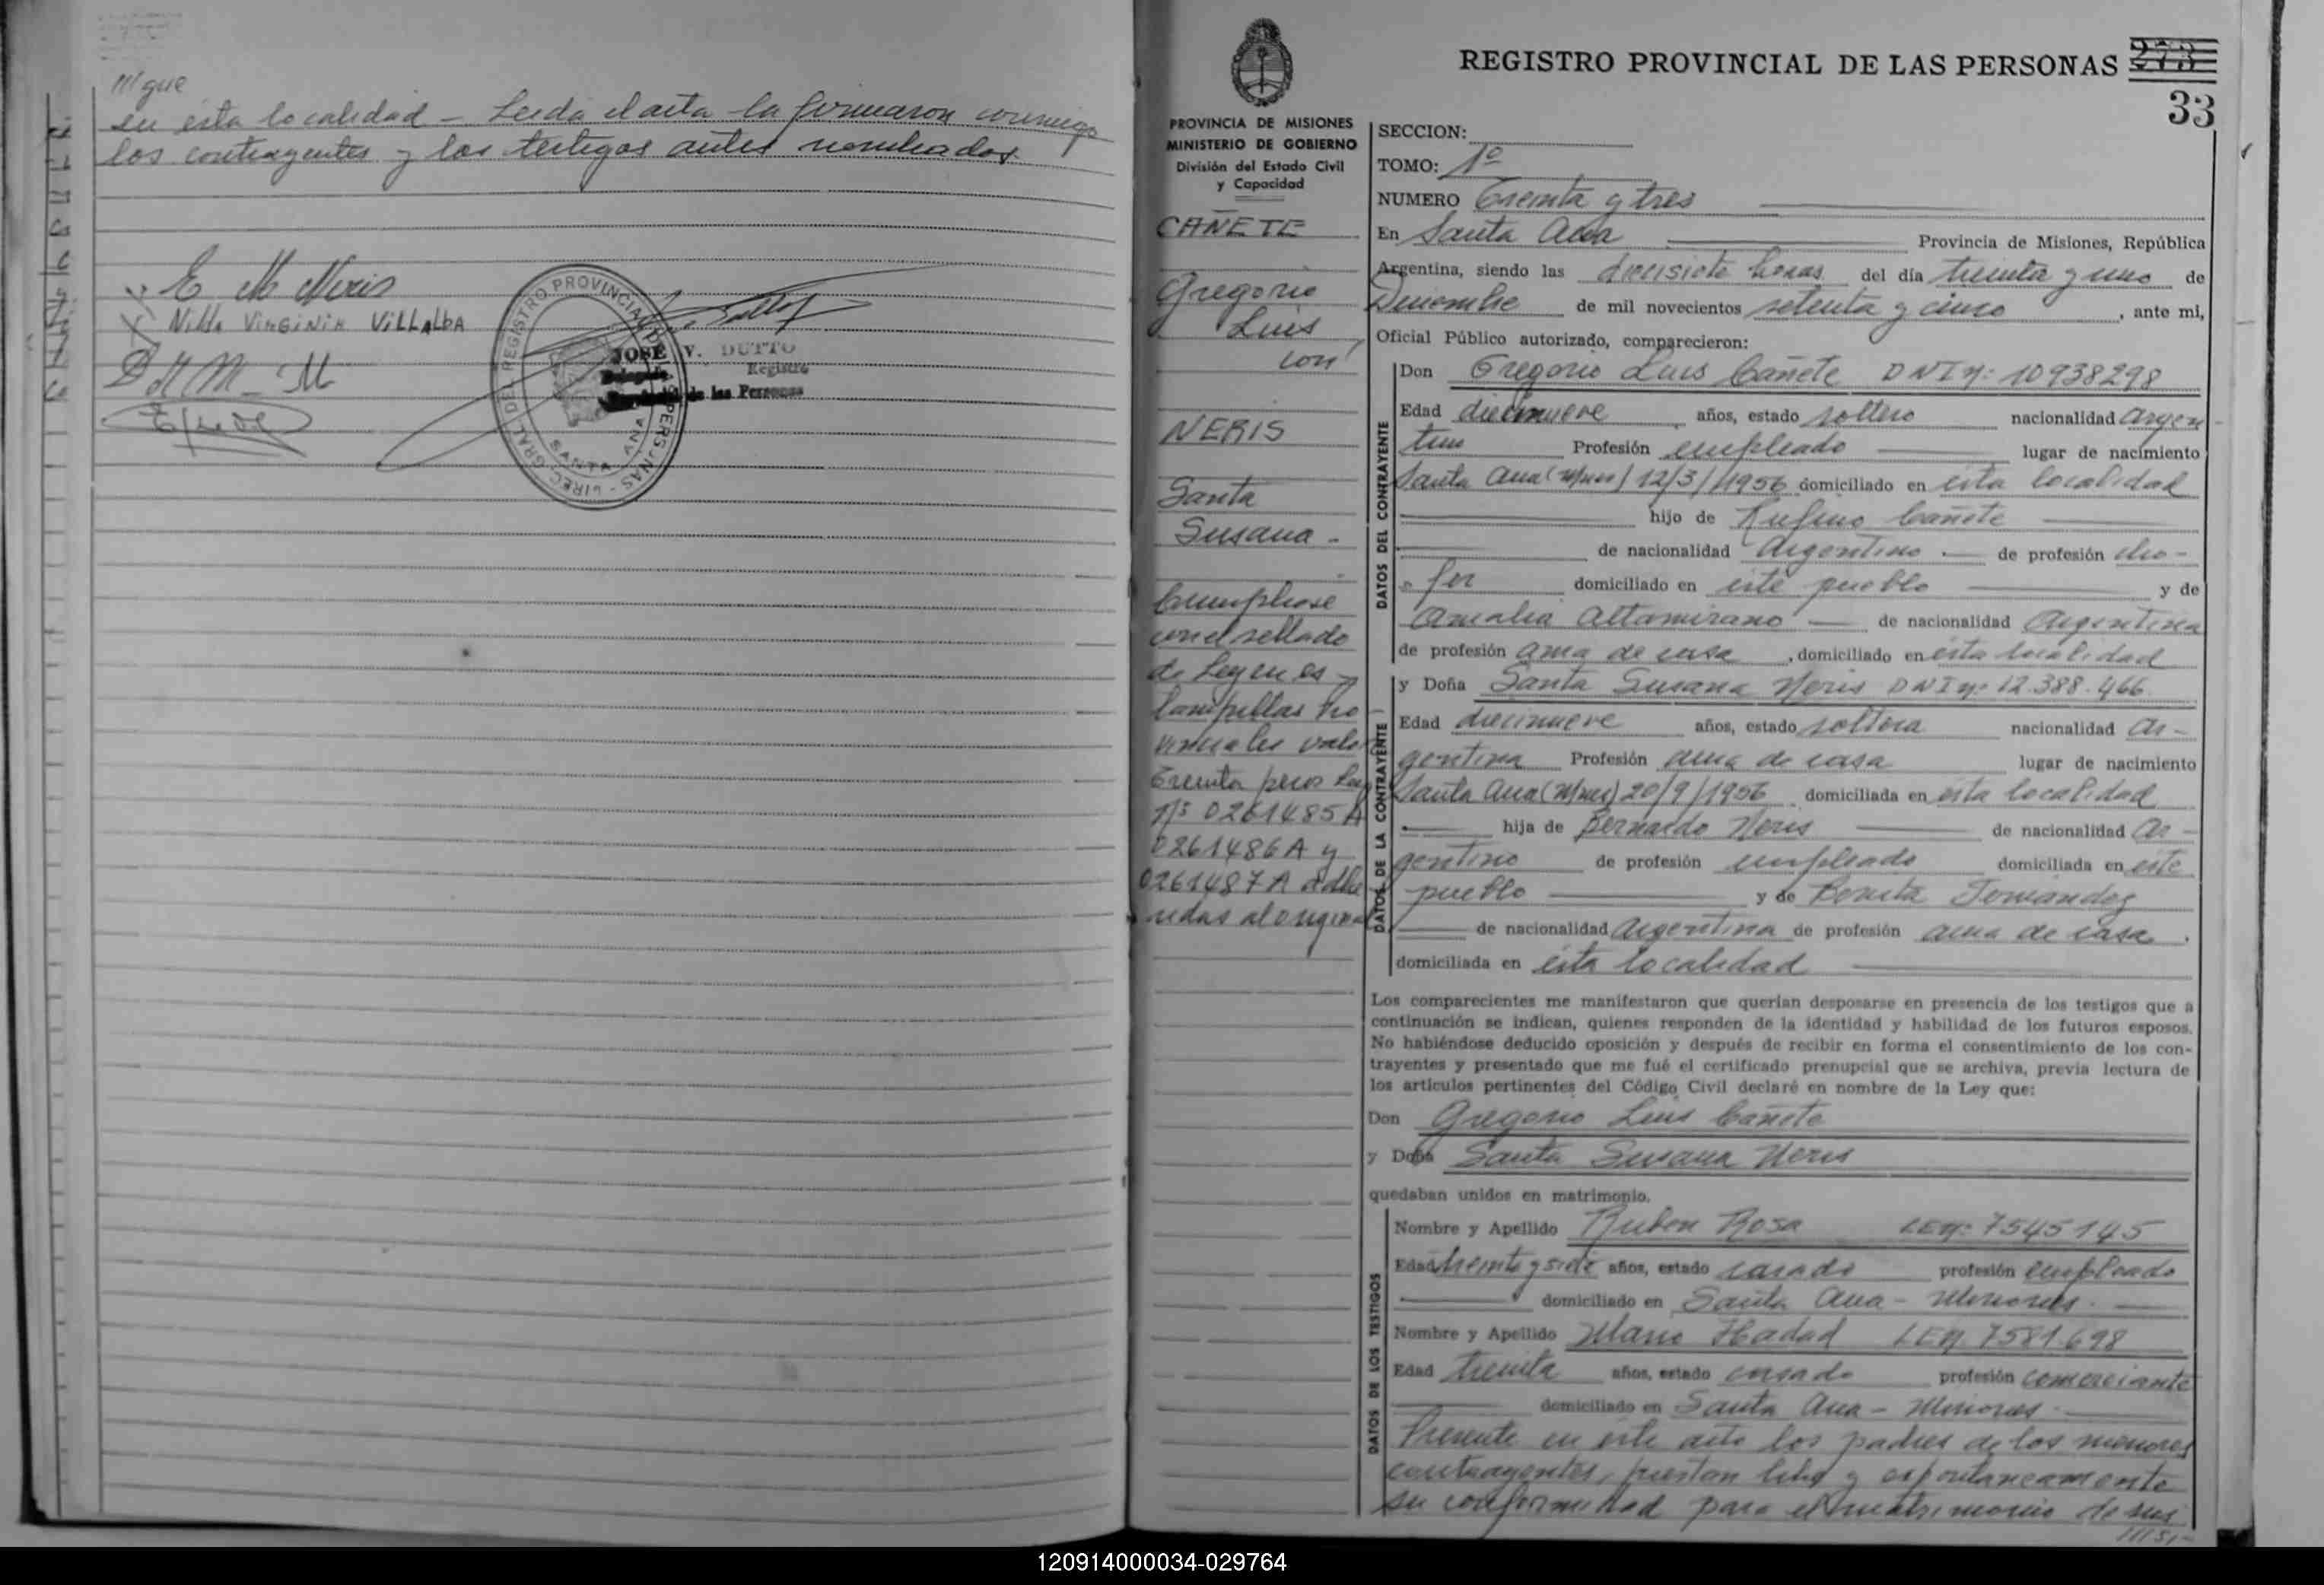 /// que
en esta localidad - Leida el acta la firmaron conmigo
los contrayentes y los testigos antes nombrados
E M Neris
Nilda Virginia Villalba
JOSE V. DUTTO
Delegado Registro
Provincial de las Personas
DIREC. GRAL. DEL REGISTRO PROVINCIAL DE LAS PERSONAS -
SANTA ANA
REGISTRO PROVINCIAL DE LAS PERSONAS 273
33
PROVINCIA DE MISIONES
MINISTERIO DE GOBIERNO
División del Estado Civil
y Capacidad
CAÑETE
Gregorio
Luis
con
NERIS
Santa
Susana -
Cumplióse
con el sellado
de Ley en es
tampillas Pro
vinciales valor
treinta pesos Ley
Nºs 0261485 A
0261486 A y
0261487 A adhe
ridas al original
SECCION:
TOMO: 1º
NUMERO Treinta y tres
En Santa Ana Provincia de Misiones, República
Argentina, siendo las diecisiete horas del día treinta y uno de
Diciembre de mil novecientos setenta y cinco, ante mi,
Oficial Público autorizado, comparecieron:
DATOS DEL CONTRAYENTE
Don Gregorio Luis Cañete DNI Nº: 10938298
Edad diecinueve años, estado soltero nacionalidad argen
tino Profesión empleado lugar de nacimiento
Santa Ana (Mnes) 12/3/1956 domiciliado en esta localidad
hijo de Rufino Cañete
de nacionalidad Argentino - de profesión cho-
fer domiciliado en este pueblo y de
Amalia Altamirano de nacionalidad Argentina
de profesión ama de casa, domiciliado en esta localidad
DATOS DE LA CONTRAYENTE
y Doña Santa Susana Neris DNI Nº: 12.388.466
Edad diecinueve años, estado soltera nacionalidad Ar-
gentina Profesión ama de casa lugar de nacimiento
Santa Ana (Mnes) 20/9/1956 domiciliada en esta localidad
hija de Bernardo Neris de nacionalidad Ar-
gentino de profesión empleado domiciliada en este
pueblo y de Benita Fernandez
de nacionalidad Argentina de profesión ama de casa.
domiciliada en esta localidad
Los comparecientes me manifestaron que querían desposarse en presencia de los testigos que a
continuación se indican, quienes responden de la identidad y habilidad de los futuros esposos.
No habiéndose deducido oposición y después de recibir en forma el consentimiento de los con-
trayentes y presentado que me fué el certificado prenupcial que se archiva, previa lectura de
los artículos pertinentes del Código Civil declaré en nombre de la Ley que:
Don Gregorio Luis Cañete
y Doña Santa Susana Neris
quedaban unidos en matrimonio.
DATOS DE LOS TESTIGOS
Nombre y Apellido Ruben Rosa LE Nº: 7545145
Edad treinta y siete años, estado casado profesión empleado
domiciliado en Santa Ana - Misiones.
Nombre y Apellido Mario Hadad LE Nº. 7581698
Edad treinta años, estado casado profesión comerciante
domiciliado en Santa Ana - Misiones
Presente en este acto los padres de los menores
contrayentes, prestan libre y espontaneamente
su conformidad para el matrimonio de sus
120914000034-029764